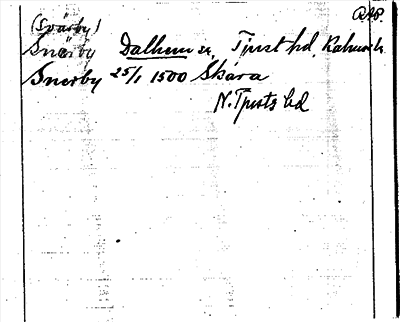 RAP.
(Svärby)
Snärby Dalhem sn, Tjust hd, Kalmar l.
Snerby 25/1 1500 Skara
N. Tjusts hd